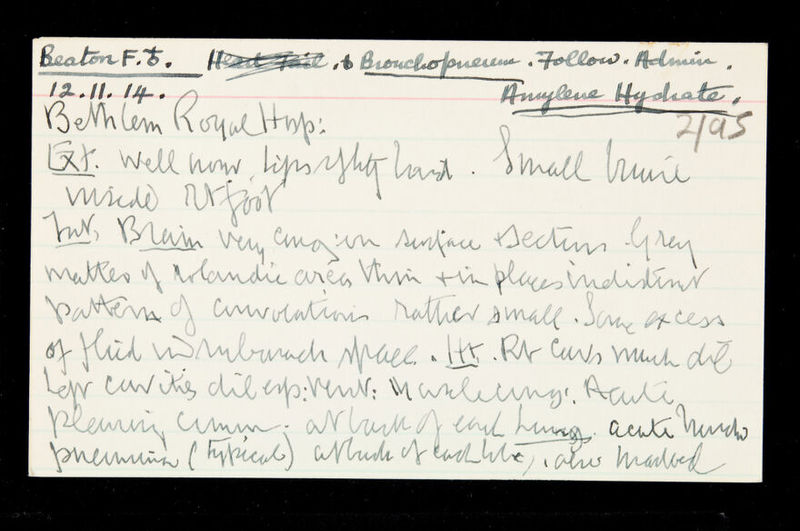 Beaton F. Heart Fail. & Bronchopneum. Follow. Admin.
12.11.14. Amylene Hydrate.
Bethlem Royal Hosp: 2/95
Ext. Well now. Lips slightly . Small bruise
inside Rt foot
Int. Brain very cong: on surface & section. Grey
matter of rolandic area thin & in places indistinct
pattern of convolutions rather small. Some excess
of fluid in subarach space. Ht. Rt cavs much dil
Left cavities dil esp: vent: Muscle cong:. Acute
pleurisy comm: at back of each lung. acute broncho
pneumonia (typical) at back of each lobe, also marked